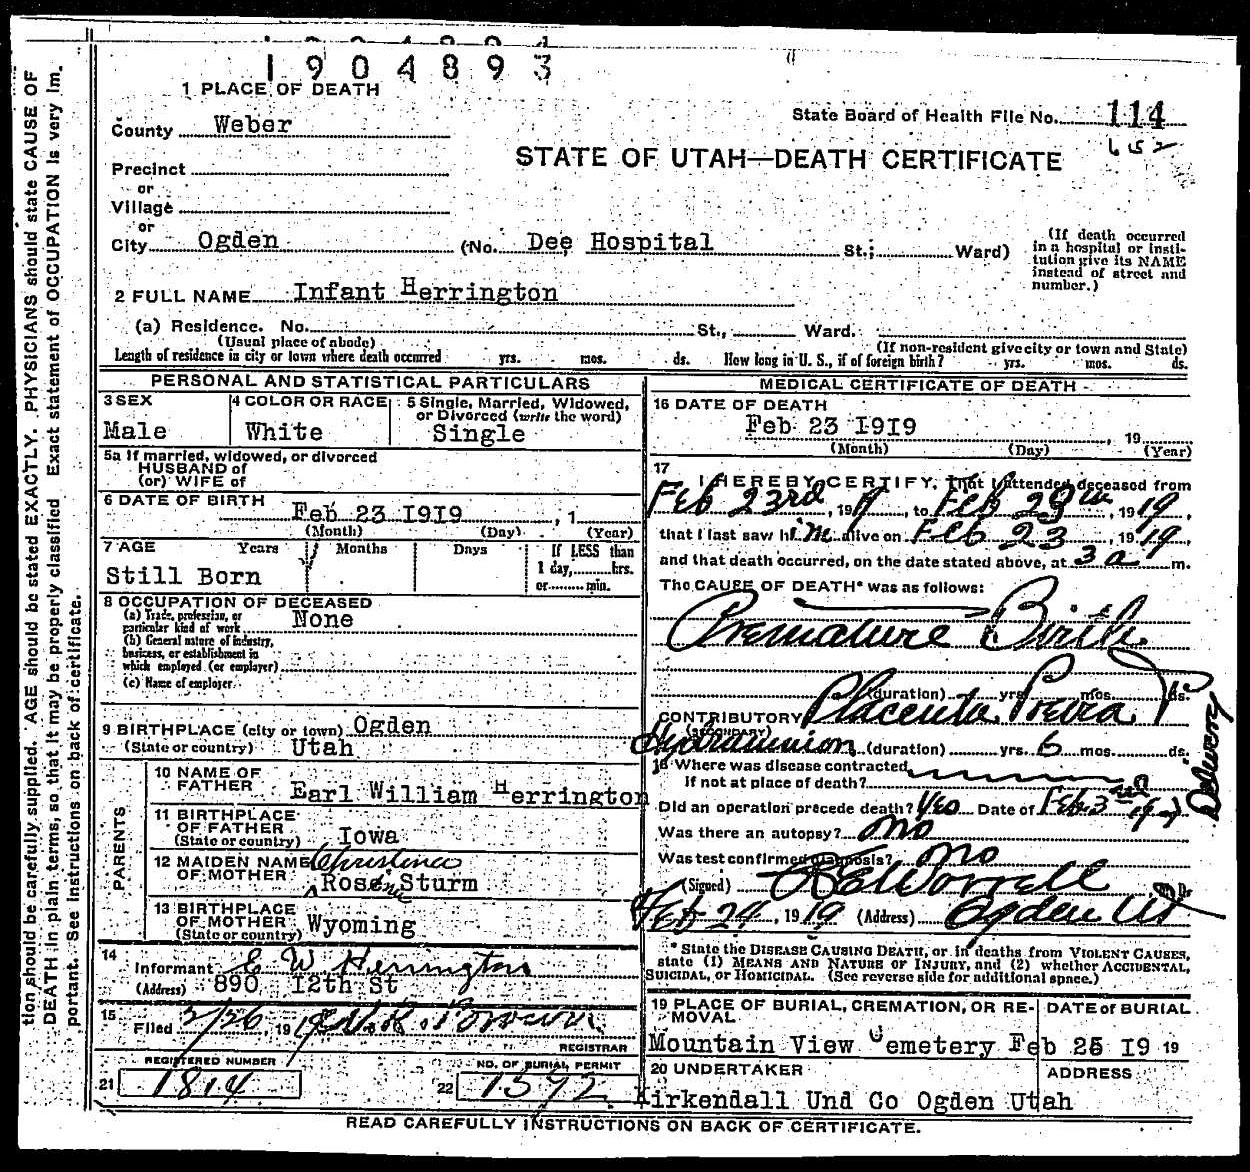 1904893
1 PLACE OF DEATH
County Weber
State Board of Health File No. 114
652
STATE OF UTAH—DEATH CERTIFICATE
Precinct
or
Village
or
City Ogden (No. Dee Hospital St.; Ward)
(If death occurred in a hospital or institution give its NAME instead of street and number.)
2 FULL NAME Infant Herrington
(a) Residence. No. St., Ward.
(Usual place of abode) (If non-resident give city or town and State)
Length of residence in city or town where death occurred yrs. mos. ds. How long in U. S., if of foreign birth? yrs. mos. ds.
PERSONAL AND STATISTICAL PARTICULARS
3 SEX
Male
4 COLOR OR RACE
White
5 Single, Married, Widowed, or Divorced (write the word)
Single
5a If married, widowed, or divorced
HUSBAND of
(or) WIFE of
6 DATE OF BIRTH
Feb 23 1919, 1
(Month) (Day) (Year)
7 AGE Years Months Days If LESS than
1 day, hrs.
or min.
Still Born
8 OCCUPATION OF DECEASED
(a) Trade, profession, or
particular kind of work None
(b) General nature of industry,
business, or establishment in
which employed (or employer)
(c) Name of employer
9 BIRTHPLACE (city or town) Ogden
(State or country) Utah
PARENTS
10 NAME OF
FATHER Earl William Herrington
11 BIRTHPLACE
OF FATHER
(State or country) Iowa
12 MAIDEN NAME Christina
OF MOTHER Rose Sturm
13 BIRTHPLACE
OF MOTHER
(State or country) Wyoming
14
Informant E W Herrington
(Address) 890 12th St
15
Filed 2/26, 1919
REGISTRAR
REGISTERED NUMBER
21 1814
NO. OF BURIAL PERMIT
22 1392
MEDICAL CERTIFICATE OF DEATH
16 DATE OF DEATH
Feb 23 1919, 19
(Month) (Day) (Year)
17
I HEREBY CERTIFY, That I attended deceased from
Feb 23rd, 1919, to Feb 23, 1919,
that I last saw him alive on Feb 23, 1919,
and that death occurred, on the date stated above, at 3 a m.
The CAUSE OF DEATH* was as follows:
Premature Birth
(duration) yrs. mos. ds.
CONTRIBUTORY Placenta Previa
(SECONDARY)
(duration) yrs. 6 mos. ds.
Delivery
18 Where was disease contracted
If not at place of death?
Did an operation precede death? Yes Date of Feb
Was there an autopsy? No
Was test confirmed diagnosis? No
(Signed) Worrell M. D.
Feb 24, 1919 (Address) Ogden Ut
* State the DISEASE CAUSING DEATH, or in deaths from VIOLENT CAUSES,
state (1) MEANS AND NATURE OF INJURY, and (2) whether ACCIDENTAL,
SUICIDAL, or HOMICIDAL. (See reverse side for additional space.)
19 PLACE OF BURIAL, CREMATION, OR REMOVAL
DATE of BURIAL
Mountain View Cemetery Feb 25 19 19
20 UNDERTAKER ADDRESS
Kirkendall Und Co Ogden Utah
READ CAREFULLY INSTRUCTIONS ON BACK OF CERTIFICATE.
tion should be carefully supplied. AGE should be stated EXACTLY. PHYSICIANS should state CAUSE OF
DEATH in plain terms, so that it may be properly classified. Exact statement of OCCUPATION is very im-
portant. See instructions on back of certificate.